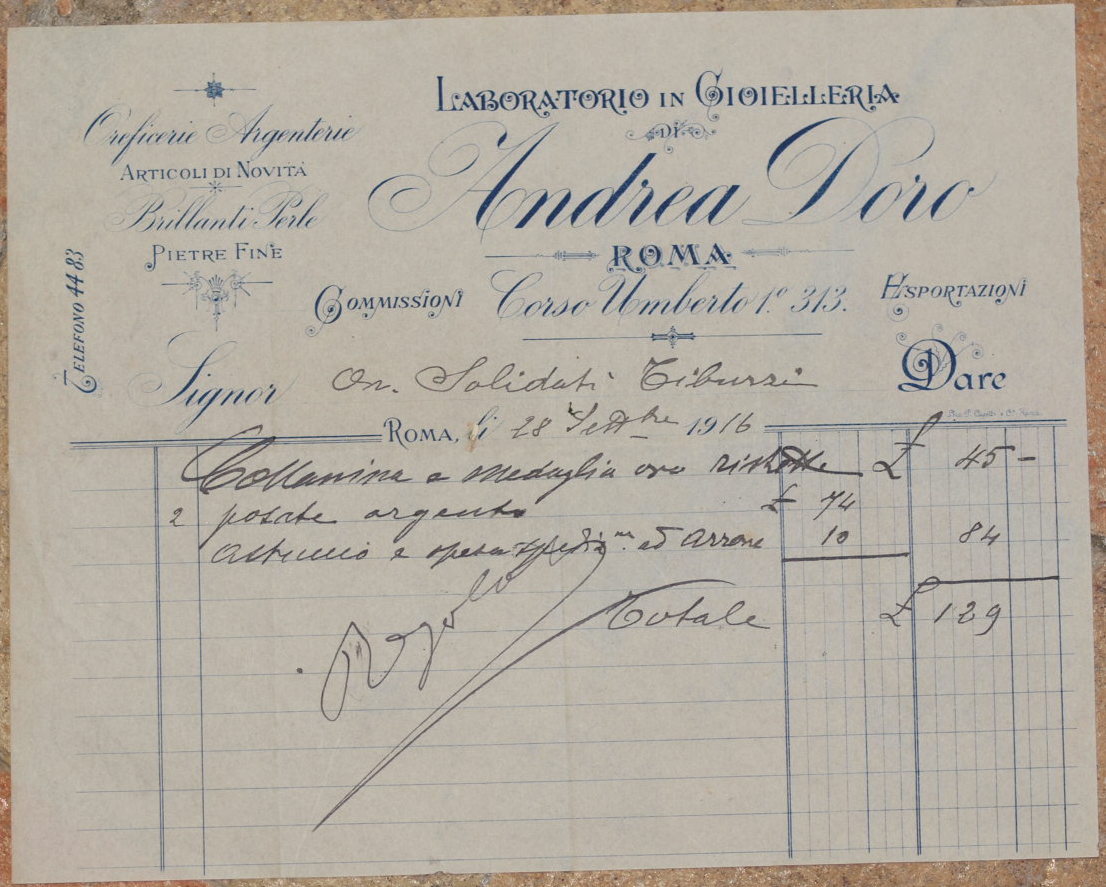 LABORATORIO IN GIOIELLERIA
DI
Andrea Doro
ROMA
Corso Umberto 1º 313.
COMMISSIONI
ESPORTAZIONI
Oreficerie Argenterie
ARTICOLI DI NOVITÀ
Brillanti Perle
PIETRE FINE
TELEFONO 44 83
Signor On. Solidati Tiburzi
Dare
ROMA, li 28 Settbre 1916
Collanina e medaglia oro £ 45 -
2 posate argento £ 74
astuccio e spesa ad Arrone 10 84
Totale £ 129